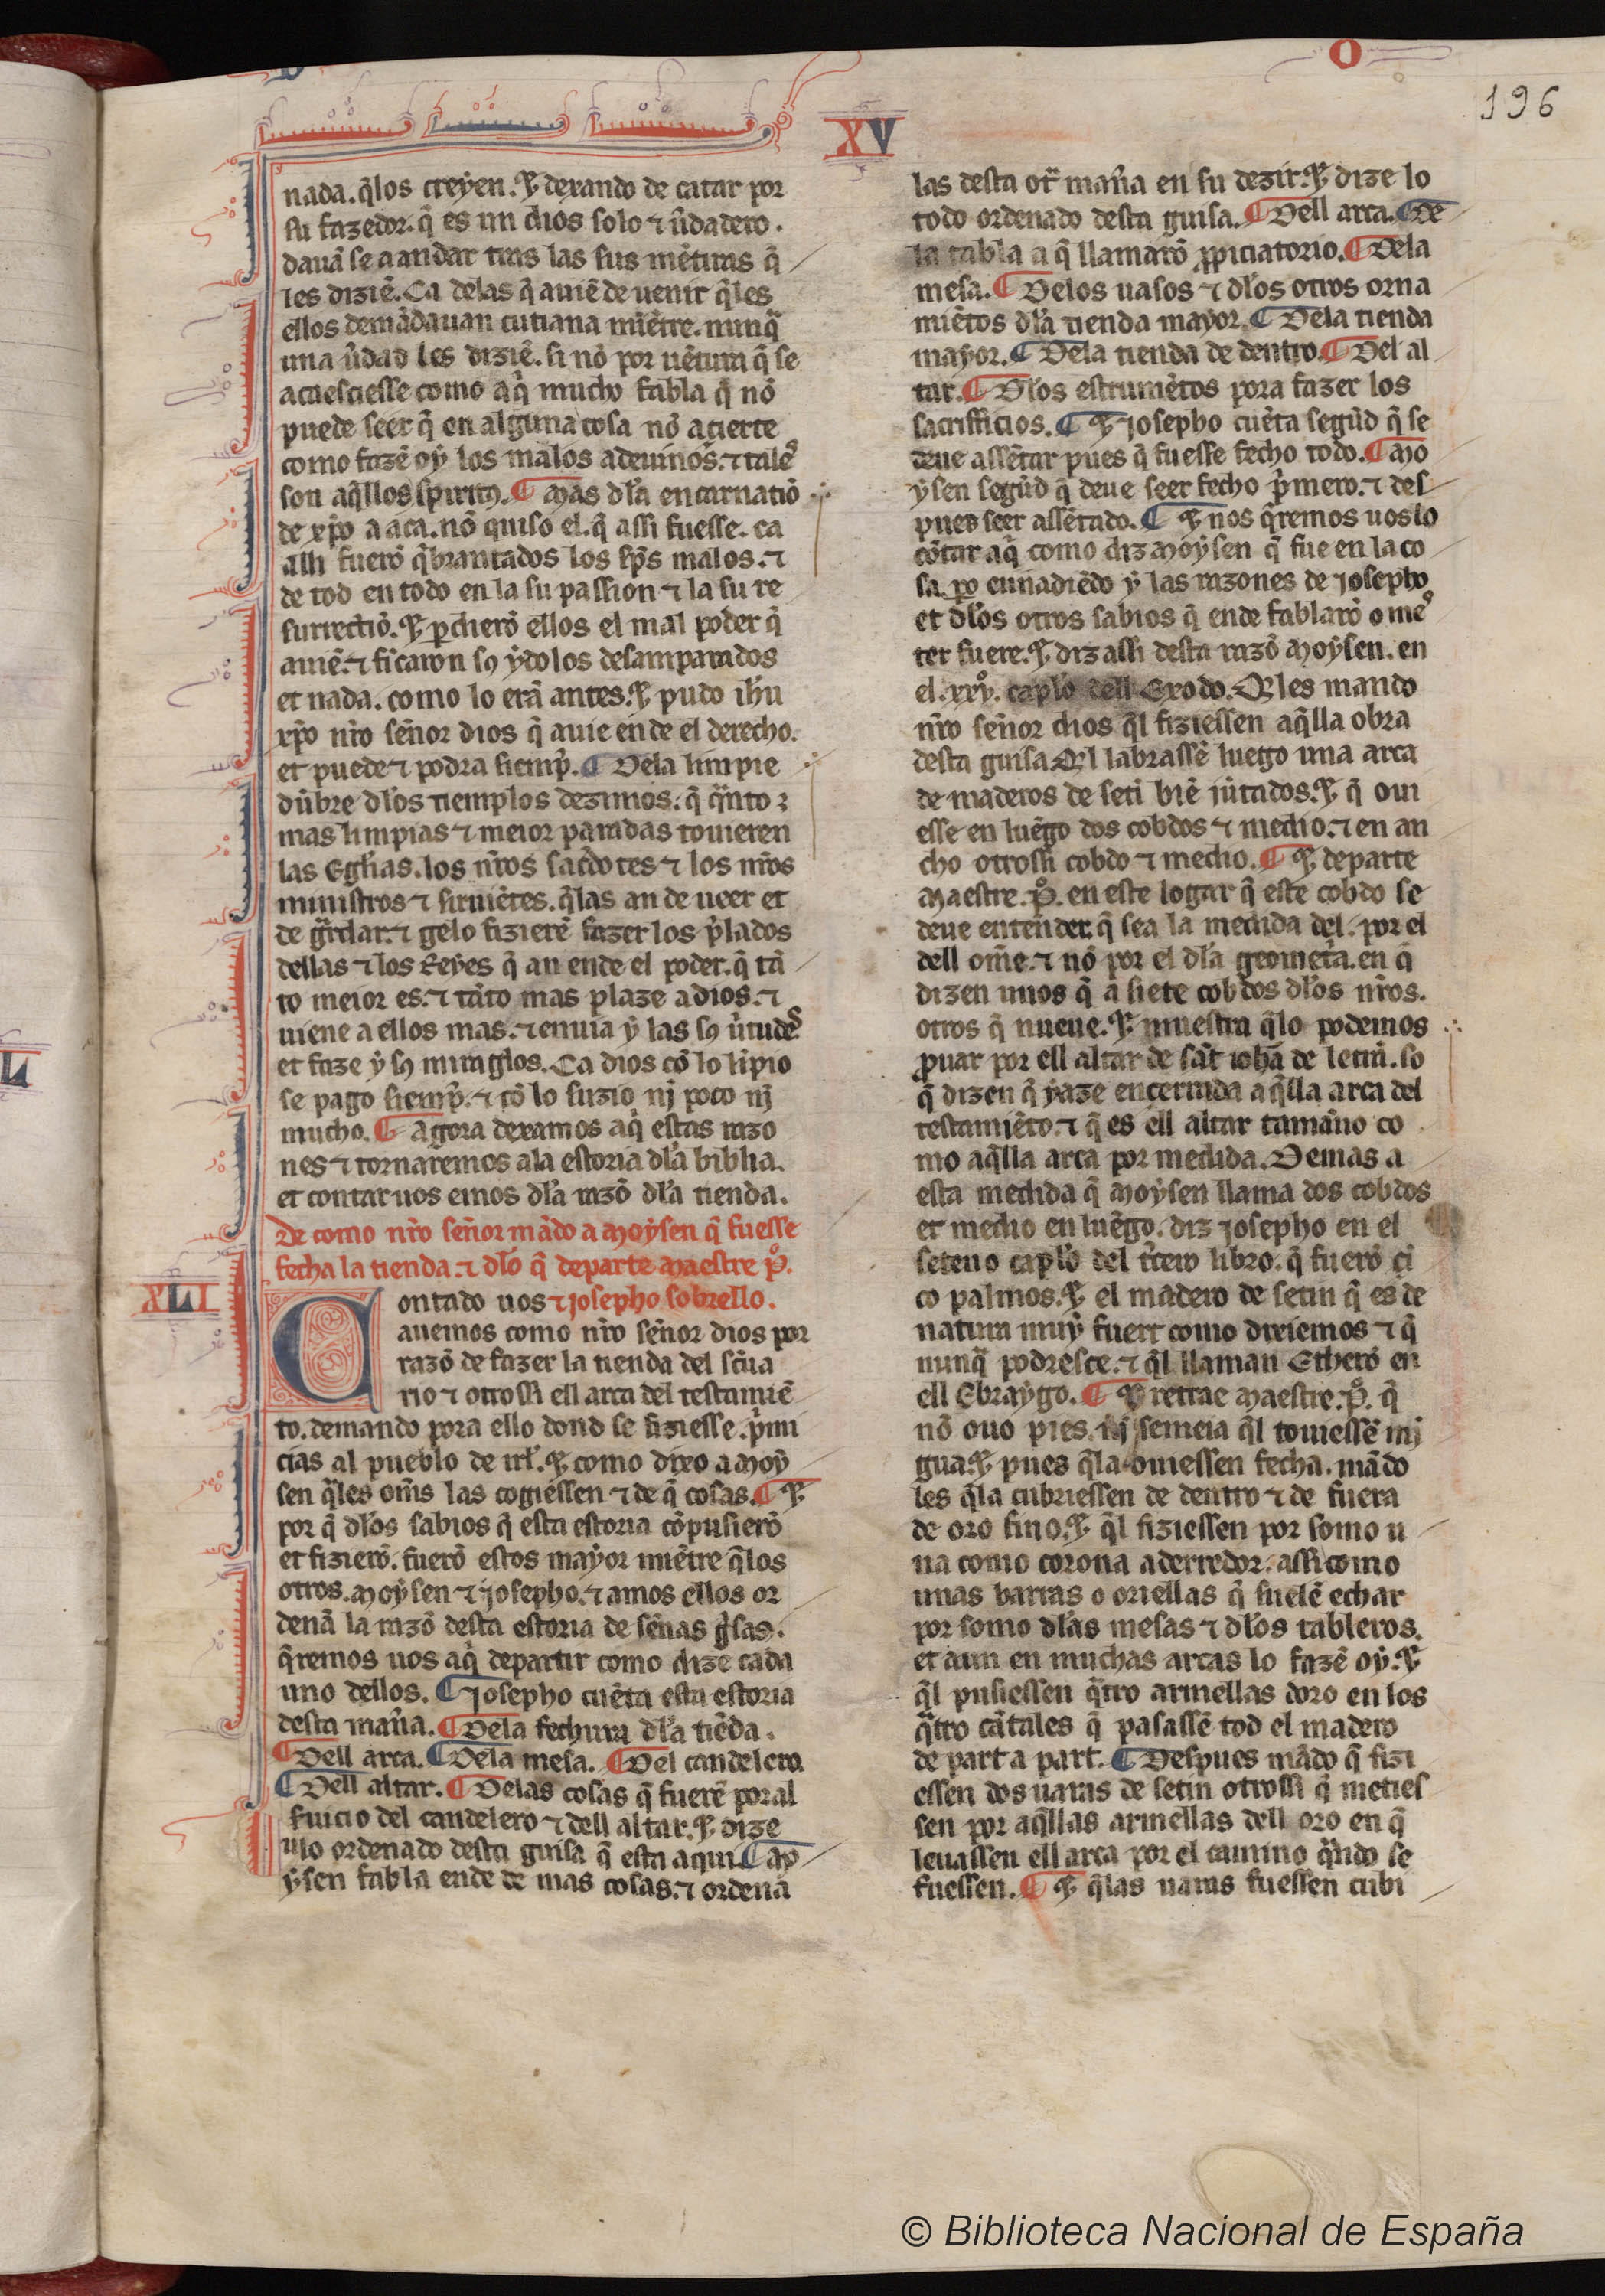 O
196
XV
nada. q̃los creyen. ⁊ dexando de catar por
su fazedor. q̃ es un dios solo ⁊ ũdadero.
dauã se a andar tras las sus mẽtiras q̃
les diziẽ. Ca delas q̃ auiẽ de uenir q̃les
ellos demãdauan cutiana miẽtre. nunq̃
una ũdad les diziẽ. si nõ por uẽtura q̃ se
acaesciesse como aq̃ mucho fabla q̃ nõ
puede seer q̃ en alguna cosa nõ acierte
como fazẽ oy los malos adeuinos. ⁊ tales
son aq̃llos spiritꝯ. ¶ Mas dla encarnatiõ
de xp̃o a aca. nõ quiso el. q̃ assi fuesse. ca
alli fuerõ q̃brantados los sp̃s malos. ⁊
de tod en todo en la su passion ⁊ la su re
surrectiõ. ⁊ ꝑdierõ ellos el mal poder q̃
auiẽ. ⁊ ficaron sꝯ ydolos desamparados
et nada. como lo erã antes. ⁊ pudo ih̃u
xp̃o nr̃o señor dios q̃ auie ende el derecho.
et puede ⁊ podra siemp̃. ¶ Dela limpie
dũbre dlos tiemplos dezimos. q̃ q̃nto
mas limpias ⁊ meior paradas touieren
las Egl̃ias. los nr̃os sac̃dotes ⁊ los nr̃os
ministros ⁊ siruiẽtes. q̃las an de ueer et
de g̃rdar. ⁊ gelo fizierẽ fazer los p̃lados
dellas ⁊ los Reyes q̃ an ende el poder. q̃ tã
to meior es. ⁊ tãto mas plaze a dios. ⁊
uiene a ellos mas. ⁊ enuia y las sꝯ ũtudes
et faze y sꝯ miraglos. Ca dios cõ lo lĩpio
se pago siemp̃. ⁊ cõ lo suzio nj poco nj
mucho. ¶ Agora dexamos aq̃ estas razo
nes ⁊ tornaremos ala estoria dla biblia.
et contar uos emos dla razõ dla tienda.
De como nr̃o señor mãdo a Moysen q̃ fuesse
fecha la tienda. ⁊ dlo q̃ departe Maestre P̊.
XLI
Contado uos ⁊ Josepho sobrello.
auemos como nr̃o señor dios por
razõ de fazer la tienda del sc̃ua
rio ⁊ otrossi ell arca del testamiẽ
to. demando pora ello dond se fiziesse. p̃mi
cias al pueblo de irl̃. ⁊ como dixo a Moy
sen q̃les om̃s las cogiessen ⁊ de q̃ cosas. ¶ ⁊
por q̃ dlos sabios q̃ esta estoria cõpusierõ
et fizierõ. fuerõ estos mayor miẽtre q̃los
otros. Moysen ⁊ Josepho. ⁊ amos ellos or
denã la razõ desta estoria de sẽnas g̃sas.
q̃remos uos aq̃ departir como dize cada
uno dellos. ¶ Josepho cuẽta esta estoria
desta mañra. ¶ Dela fechura dla tiẽda.
¶ Dell arca. ¶ Dela mesa. ¶ Del candelero
¶ Dell altar. ¶ Delas cosas q̃ fuerẽ poral
suicio del candelero ⁊ dell altar. ⁊ dize
ulo ordenado desta guisa q̃ esta aqui. ¶ Mo
ysen fabla ende de mas cosas. ⁊ ordenã
las desta otr̃ mañra en su dezir. ⁊ dize lo
todo ordenado desta guisa. ¶ Dell arca. ¶ De
la tabla a q̃ llamarõ ꝓpiciatorio. ¶ Dela
mesa. ¶ Delos uasos ⁊ dlos otros orna
miẽtos dla tienda mayor. ¶ Dela tienda
mayor. ¶ Dela tienda de dentro. ¶ Del al
tar. ¶ Dlos estrumẽtos pora fazer los
sacrifficios. ¶ ⁊ Josepho cuẽta segũd q̃ se
deue assẽtar pues q̃ fuesse fecho todo. ¶ Mo
ysen segũd q̃ deue seer fecho p̃mero. ⁊ des
pues seer assẽtado. ¶ ⁊ nos q̃remos uos lo
cõtar aq̃ como diz Moysen q̃ fue en la co
sa. ꝑo ennadiẽdo y las razones de Josepho
et dlos otros sabios q̃ ende fablarõ o mes
ter fuere. ⁊ diz assi desta razõ Moysen. en
el .xxỹ. capl̃o dell Exodo. Q̃ les mando
nr̃o señor dios q̃l fiziessen aq̃lla obra
desta guisa. Q̃l labrassẽ luego una arca
de maderos de seti biẽ iũtados. ⁊ q̃ oui
esse en luẽgo dos cobdos ⁊ medio. ⁊ en an
cho otrossi cobdo ⁊ medio. ¶ ⁊ departe
Maestre. P̊. en este logar q̃ este cobdo se
deue entender. q̃ sea la medida del. por el
dell om̃e. ⁊ nõ por el dla geomet̃a. en q̃
dizen unos q̃ a siete cobdos dlos nr̃os.
otros q̃ nueue. ⁊ muestra q̃lo podemos
ꝓuar por ell altar de sãt iohã de letrã. so
q̃ dizen q̃ yaze encerrada aq̃lla arca del
testamiẽto. ⁊ q̃ es ell altar tamãno co
mo aq̃lla arca por medida. Demas a
esta medida q̃ Moysen llama dos cobdos
et medio en luẽgo. diz Josepho en el
seteno capl̃o del t̃cero libro. q̃ fuerõ ci
co palmos. ⁊ el madero de setin q̃ es de
natura muy fuert como dixiemos ⁊ q̃
nunq̃ podresce. ⁊ q̃l llaman Etherõ en
ell Ebraygo. ¶ ⁊ retrae Maestre. P̊. q̃
nõ ouo pies. nj semeia q̃l touiessẽ mj
gua. ⁊ pues q̃la ouiessen fecha. mãdo
les q̃la cubriessen de dentro ⁊ de fuera
de oro fino. ⁊ q̃l fiziessen por somo u
na como corona aderredor. assi como
unas barras o oriellas q̃ suelẽ echar
por somo dlas mesas ⁊ dlos tableros.
et aun en muchas arcas lo fazẽ oy. ⁊
q̃l pusiessen q̃tro armellas doro en los
q̃tro cãtales q̃ passassẽ tod el madero
de part a part. ¶ Despues mãdo q̃ fizi
essen dos uaras de setin otrossi q̃ meties
sen por aq̃llas armellas dell oro en q̃
leuassen ell arca por el camino q̃ndo se
fuessen. ¶ ⁊ q̃las uaras fuessen cubi
© Biblioteca Nacional de España